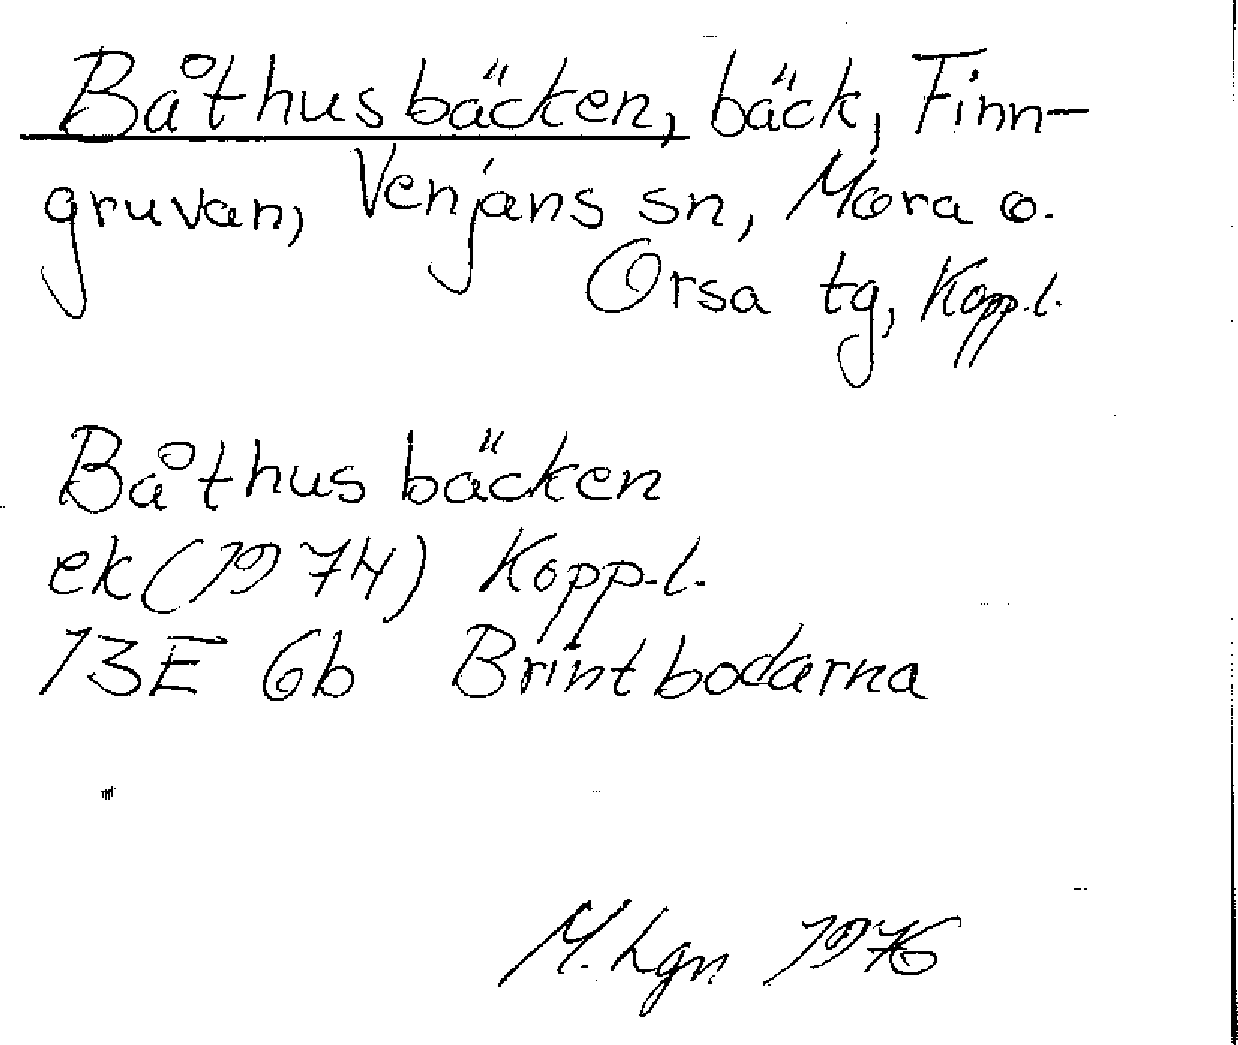 Båthusbäcken, bäck, Finn-
gruvan, Venjans sn, Mora o.
Orsa tg, Kopp.l.
Båthusbäcken
ek (1974) Kopp.l.
13E 6b Brintbodarna
M. Lgn 1976